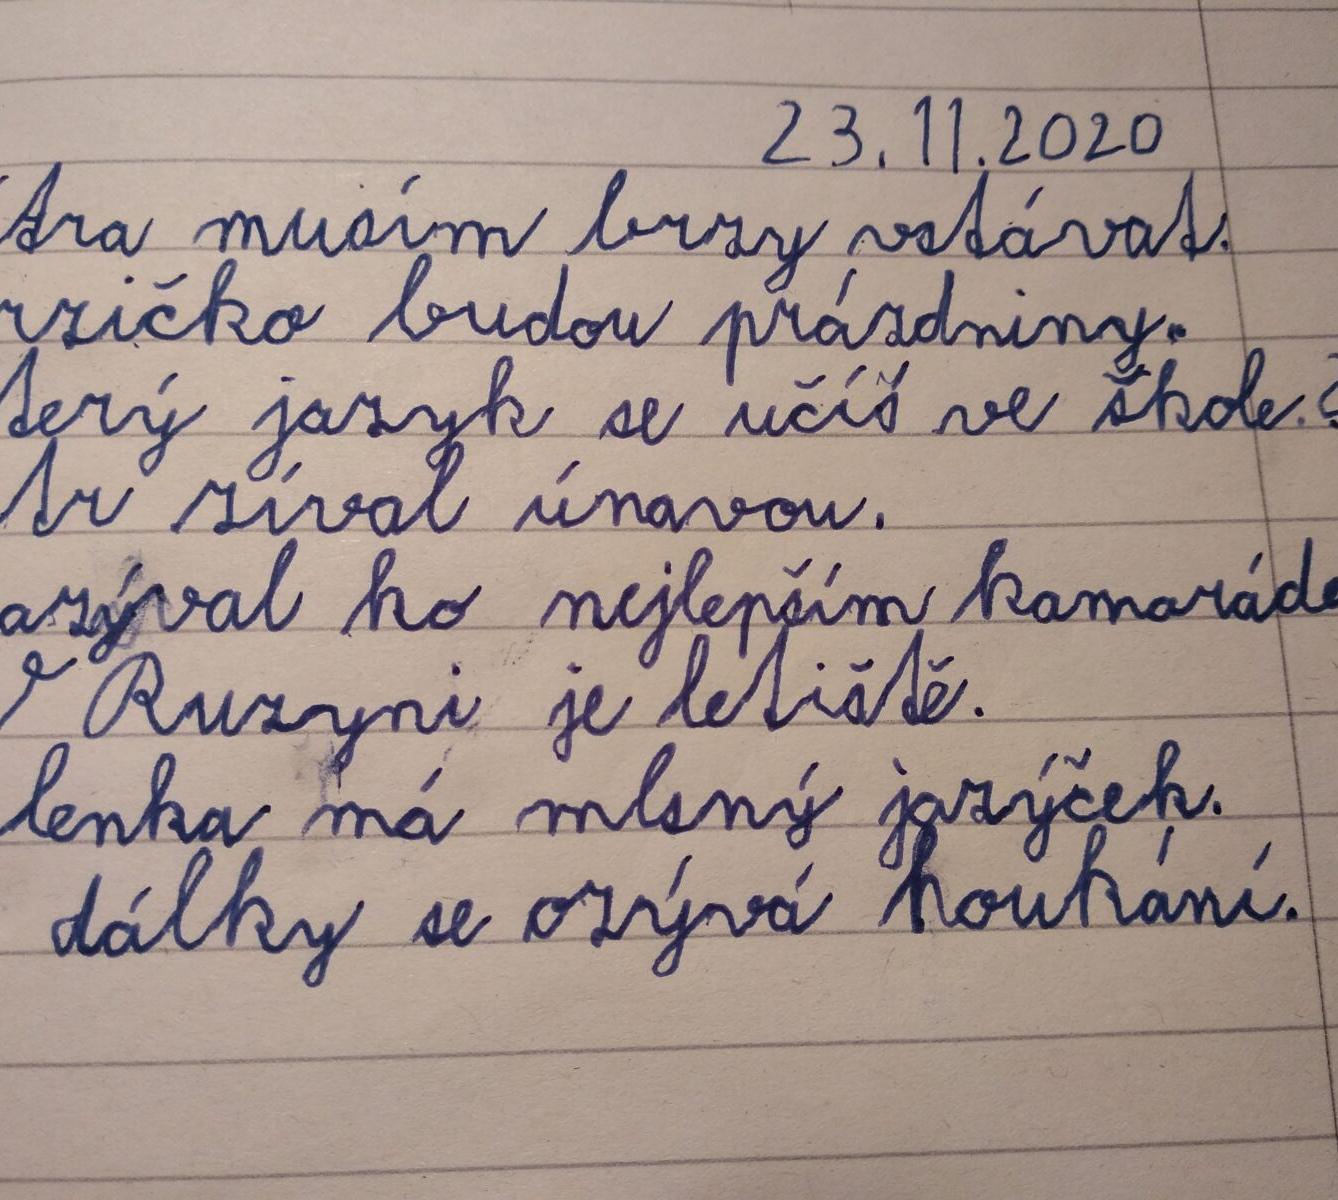 23.11.2020
ítra musím brzy vstávat.
rzičko budou prázdniny.
terý jazyk se učíš ve škole?
tr zíval únavou.
azýval ho nejlepším kamaráde
V Ruzyni je letiště.
lenka má mlsný jazýček.
dálky se ozývá houkání.